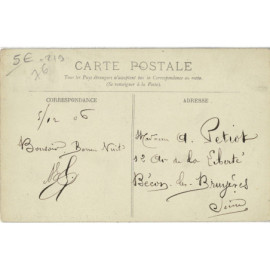 5E - 719
76
CARTE POSTALE
Tous les Pays étrangers n'acceptent pas la Correspondance au recto.
(Se renseigner à la Poste).
CORRESPONDANCE
ADRESSE
5/12 06
Bonsoir Bonne Nuit
Madame A. Petiot
Av de la Liberté
Bécon-les-Bruyères
Seine